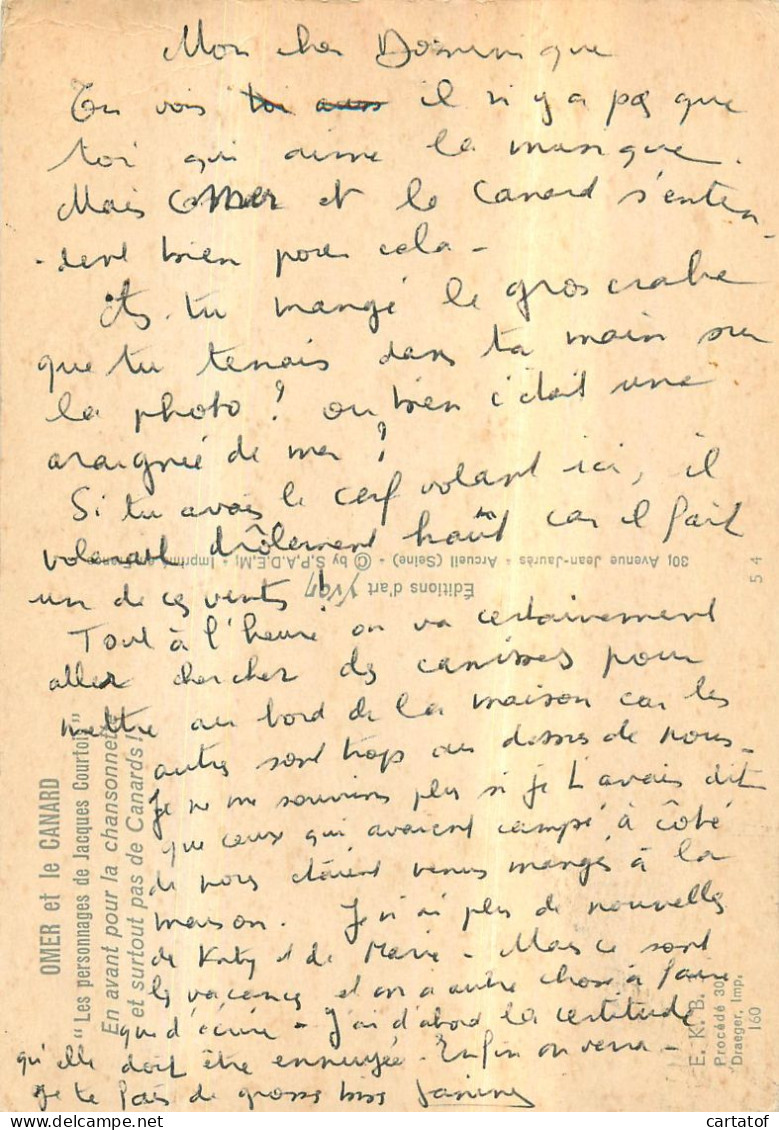 Mon cher Dominique
Tu vois toi aussi il n'y a pas que
toi qui aime la musique.
Mais OMER et le Canard s'enten-
-dent bien pour cela -
As-tu mangé le gros crabe
que tu tenais dans ta main sur
la photo ? ou bien c'était une
araignée de mer ?
Si tu avais le cerf volant ici, il
volerait drôlement haut car il fait
un de ces vents !
Tout à l'heure on va certainement
aller chercher des canisses pour
mettre au bord de la maison car les
autres sont trop au dessus de nous -
Je ne me souviens plus si je t'avais dit
que ceux qui avaient campé à côté
de nous étaient venus manger à la
maison. Je n'ai plus de nouvelles
de Katy et de Marie - Mais ce sont
les vacances et on a autre chose à faire
que d'écrire - J'ai d'abord la certitude
qu'elle doit être ennuyée. Enfin on verra -
Je te fais de grosses bises Janine
Éditions d'art YVON
30, Avenue Jean-Jaurès - Arcueil (Seine) - © by S.P.A.D.E.M. Imprimé en France
54
OMER et le CANARD
"Les personnages de Jacques Courtois"
En avant pour la chansonnette
et surtout pas de Canards !
E. K. B.
Procédé 301
Draeger, Imp.
160
cartatof